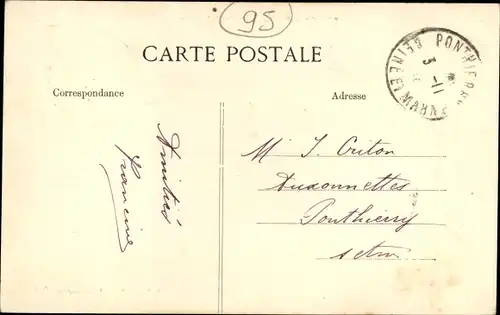 95
CARTE POSTALE
PONTHIERRY
SEINE ET MARNE
3 -11
Correspondance
Adresse
Amitiés
Francine
M J. Criton
Auxonnettes
Ponthierry
S et M